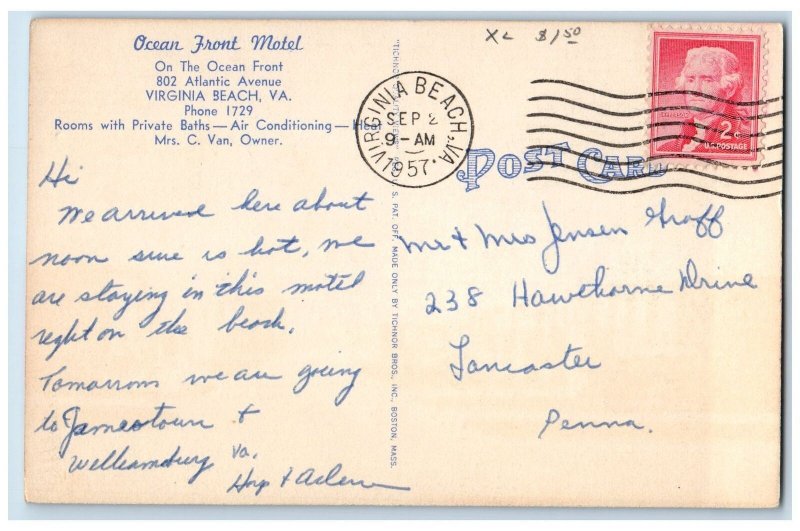 Ocean Front Motel
On The Ocean Front
802 Atlantic Avenue
VIRGINIA BEACH, VA.
Phone 1729
Rooms with Private Baths — Air Conditioning — Heat
Mrs. C. Van, Owner.
Hi
We arrived here about
noon sure is hot, we
are staying in this motel
right on the beach.
Tomorrow we are going
to Jamestown &
Williamsburg Va.
Hap &
"TICHNOR
U. S. PAT. OFF. MADE ONLY BY TICHNOR BROS., INC., BOSTON, MASS.
XL $1.50
VIRGINIA BEACH, VA.
SEP 2
9 - AM
1957
2¢
U.S. POSTAGE
POST CARD
Mr & Mrs Jensen Groff
238 Hawthorne Drive
Lancaster
Penna.